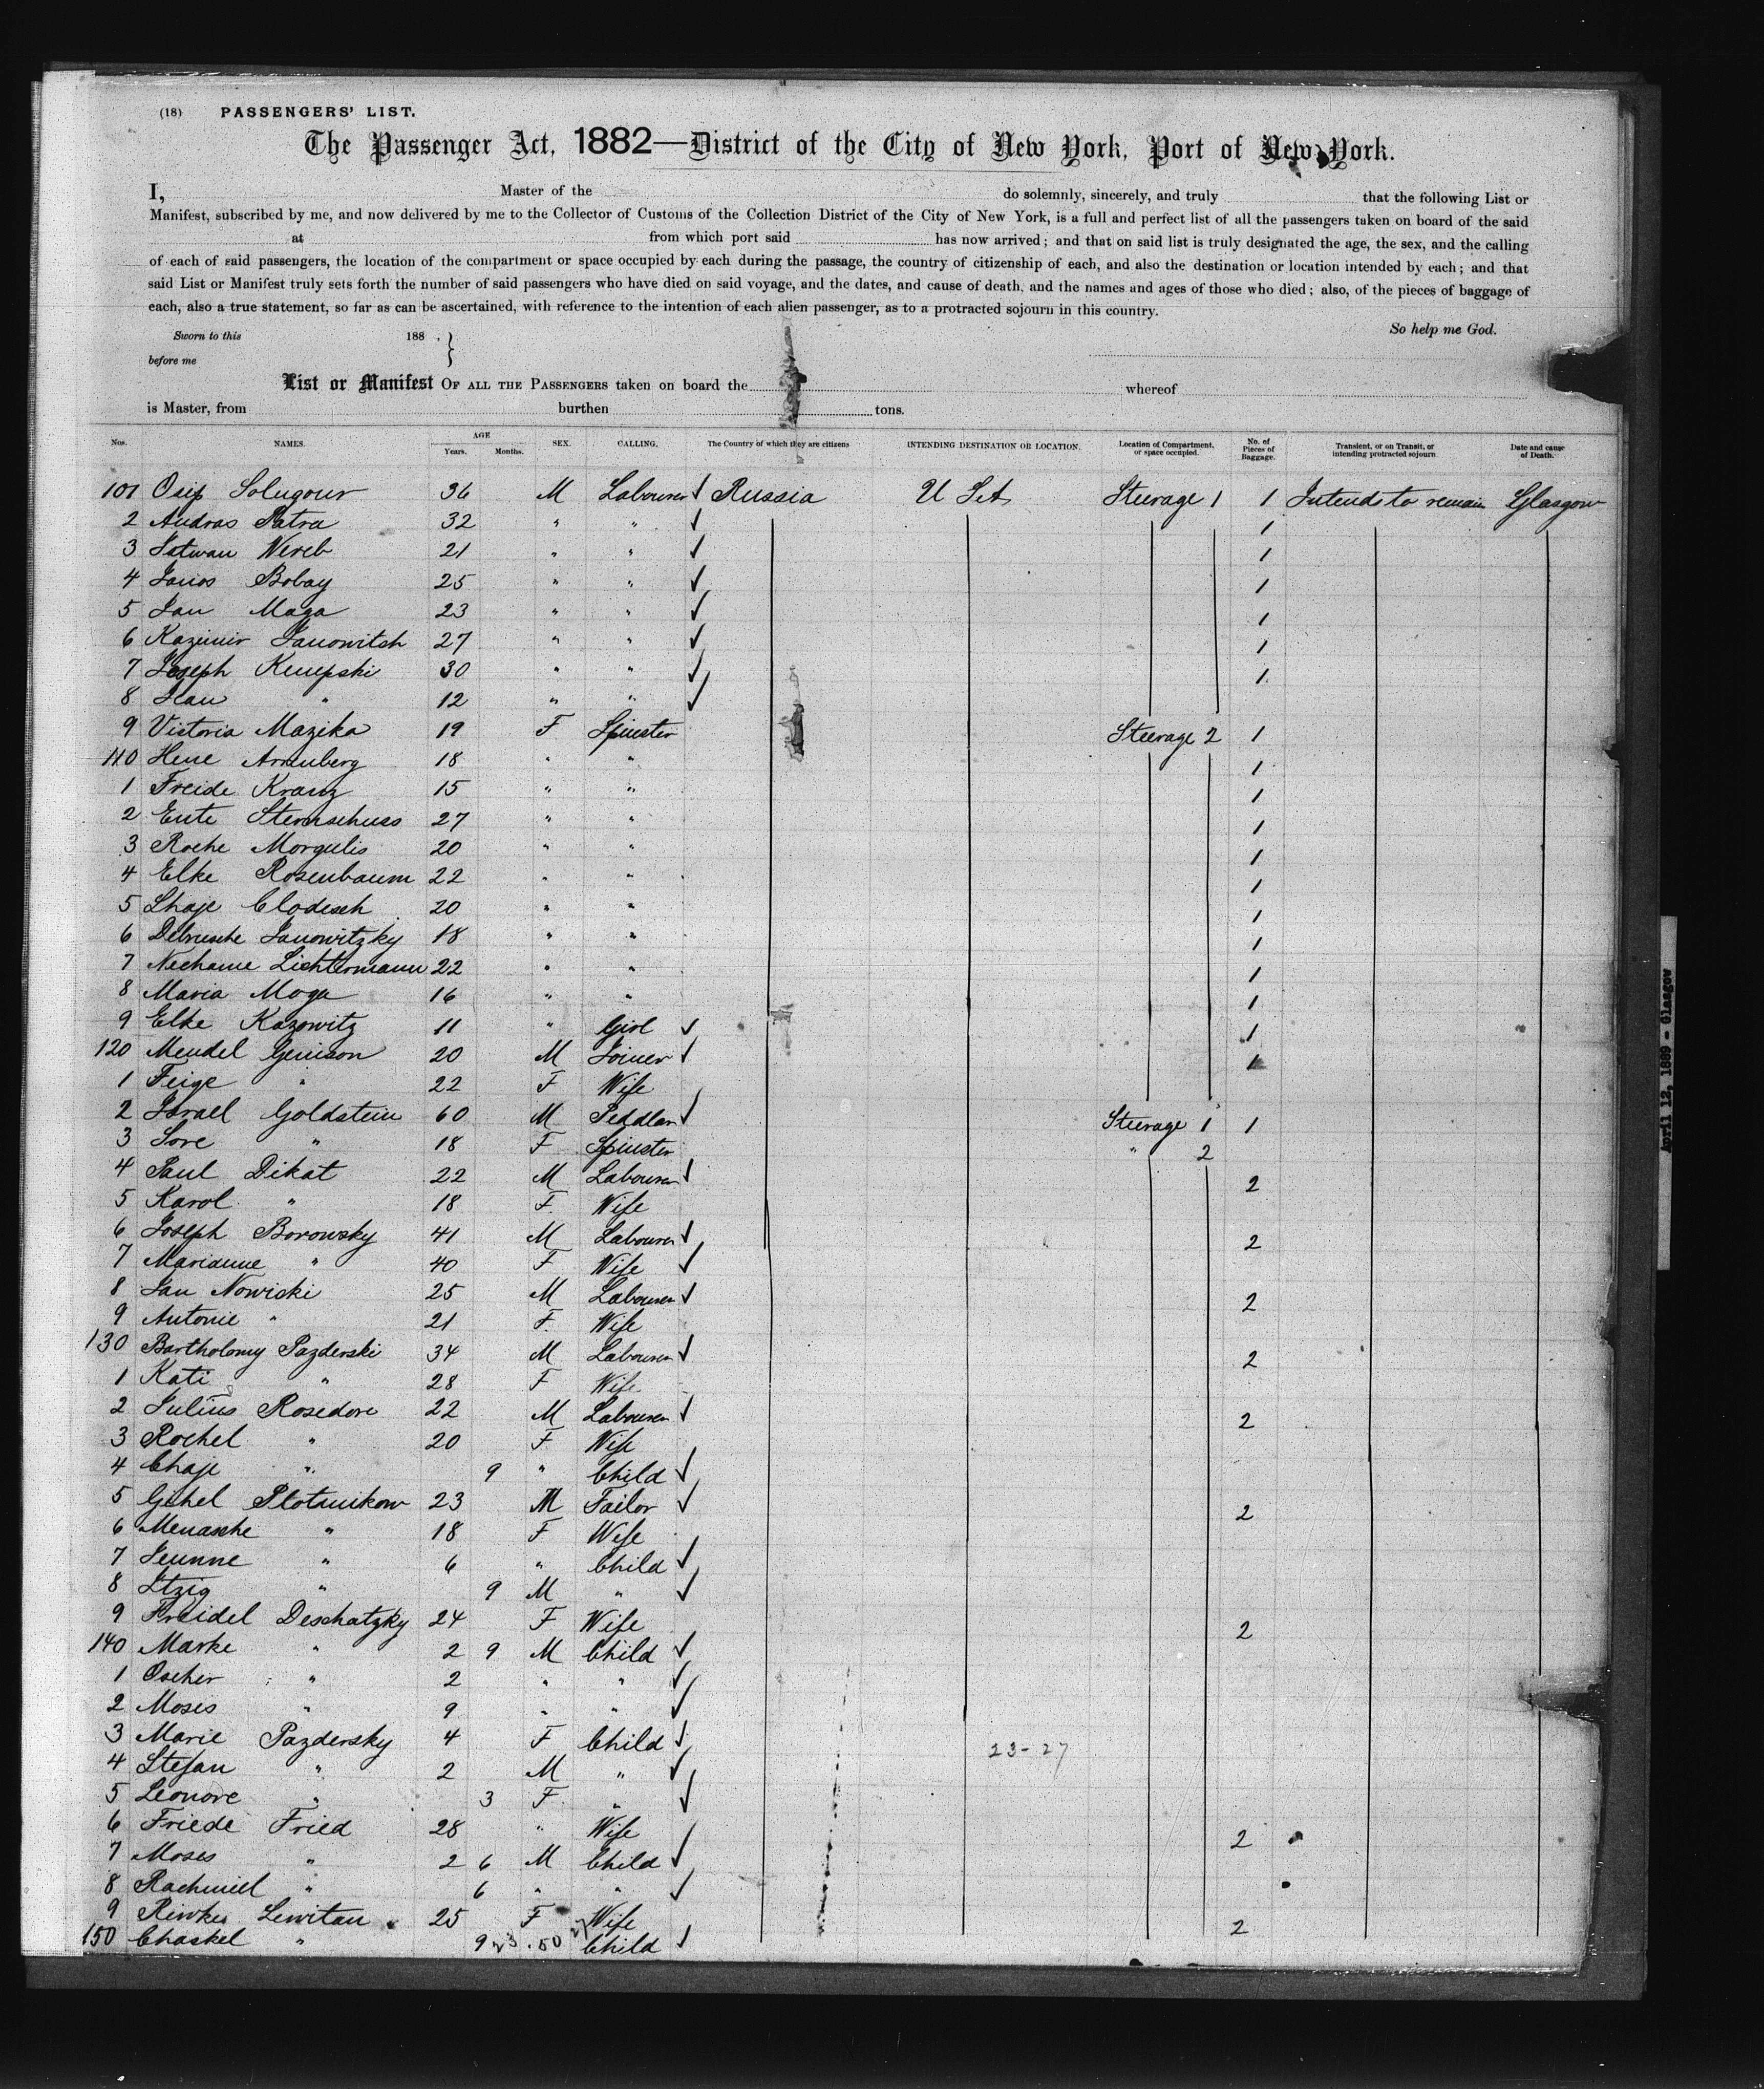 (18) PASSENGERS' LIST.
The Passenger Act, 1882—District of the City of New York, Port of New York.
I, Master of the do solemnly, sincerely, and truly that the following List or
Manifest, subscribed by me, and now delivered by me to the Collector of Customs of the Collection District of the City of New York, is a full and perfect list of all the passengers taken on board of the said
at from which port said has now arrived; and that on said list is truly designated the age, the sex, and the calling
of each of said passengers, the location of the compartment or space occupied by each during the passage, the country of citizenship of each, and also the destination or location intended by each; and that
said List or Manifest truly sets forth the number of said passengers who have died on said voyage, and the dates, and cause of death, and the names and ages of those who died; also, of the pieces of baggage of
each, also a true statement, so far as can be ascertained, with reference to the intention of each alien passenger, as to a protracted sojourn in this country.
So help me God.
Sworn to this 188 . }
before me
List or Manifest OF ALL THE PASSENGERS taken on board the whereof
is Master, from burthen tons.
Nos. NAMES. AGE Years. Months. SEX. CALLING. The Country of which they are citizens INTENDING DESTINATION OR LOCATION. Location of Compartment, or space occupied. No. of Pieces of Baggage. Transient, or on Transit, or intending protracted sojourn. Date and cause of Death.
101 Osip Solugour 36 M Labourer ✓ Russia U St Steerage 1 1 Intends to remain Glasgow
2 Andras Patra 32 " " ✓ 1
3 Istwan Wereb 21 " " ✓ 1
4 Janos Bobay 25 " " ✓ 1
5 Jan Maga 23 " " ✓ 1
6 Kazimir Janowitch 27 " " ✓ 1
7 Joseph Knepski 30 " " ✓ 1
8 Jean " 12 " " ✓
9 Victoria Mazika 19 F Spinster Steerage 2 1
110 Hene Arenberg 18 " " 1
1 Freide Kranz 15 " " 1
2 Ente Sternschuss 27 " " 1
3 Roche Morgulis 20 " " 1
4 Elke Rosenbaum 22 " " 1
5 Shaje Clodesch 20 " " 1
6 Debrusche Janowitzky 18 " " 1
7 Nechame Lichtermann 22 " " 1
8 Maria Moga 16 " " 1
9 Elke Kazowitz 11 " Girl ✓ 1
120 Mendel Genison 20 M Joiner ✓ 1
1 Feige " 22 F Wife
2 Israel Goldstein 60 M Peddlar ✓ Steerage 1 1
3 Sore " 18 F Spinster " 2
4 Paul Dikat 22 M Labourer ✓ 2
5 Karol " 18 F. Wife
6 Joseph Borowsky 41 M Labourer ✓ 2
7 Marianne " 40 F Wife ✓
8 Jan Nowicki 25 M Labourer ✓ 2
9 Antonie " 21 F. Wife
130 Bartholomy Pazderski 34 M Labourer ✓ 2
1 Kati " 28 F Wife
2 Julius Rosedore 22 M Labourer ✓ 2
3 Rochel " 20 F Wife
4 Chaje " 9 " Child ✓
5 Gehel Plotnikow 23 M Tailor ✓ 2
6 Menasche " 18 F Wife
7 Jeunne " 6 " Child ✓
8 Itzig " 9 M " ✓
9 Freidel Deschatzky 24 F Wife 2
140 Marke " 2 9 M Child ✓
1 Oscher " 2 " " ✓
2 Moses " 9 " " ✓
3 Marie Pazdersky 4 F Child ✓
23-27
4 Stefan " 2 M " ✓
5 Leonore " 3 F " ✓
6 Friede Fried 28 " Wife 2
7 Moses " 2 6 M Child ✓
8 Rachmiel " 6 " " ✓
9 Rewkes Lewitan 25 F Wife 2
150 Chaskel " 9 Child ✓
April 12, 1889 - Glasgow